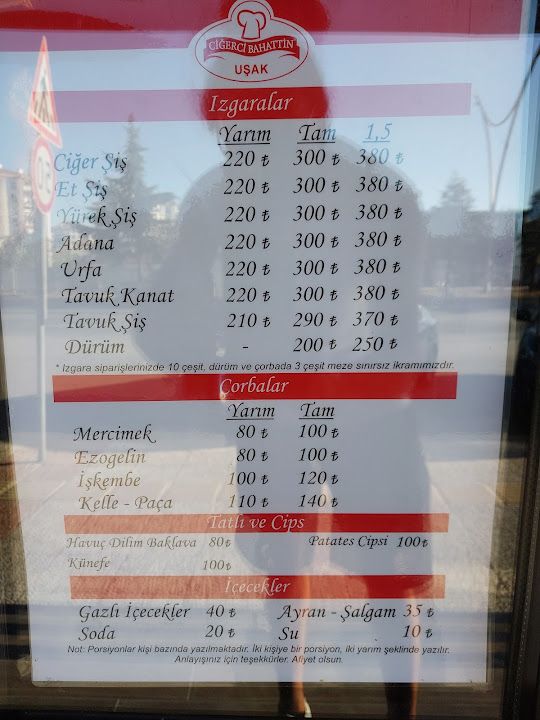 CİĞERCİ BAHATTİN
UŞAK
Izgaralar
Yarım Tam 1,5
Ciğer Şiş 220 ₺ 300 ₺ 380 ₺
Et Şiş 220 ₺ 300 ₺ 380 ₺
Yürek Şiş 220 ₺ 300 ₺ 380 ₺
Adana 220 ₺ 300 ₺ 380 ₺
Urfa 220 ₺ 300 ₺ 380 ₺
Tavuk Kanat 220 ₺ 300 ₺ 380 ₺
Tavuk Şiş 210 ₺ 290 ₺ 370 ₺
Dürüm - 200 ₺ 250 ₺
* Izgara siparişlerinizde 10 çeşit, dürüm ve çorbada 3 çeşit meze sınırsız ikramımızdır.
Çorbalar
Yarım Tam
Mercimek 80 ₺ 100 ₺
Ezogelin 80 ₺ 100 ₺
İşkembe 100 ₺ 120 ₺
Kelle - Paça 110 ₺ 140 ₺
Tatlı ve Cips
Havuç Dilim Baklava 80 ₺ Patates Cipsi 100 ₺
Künefe 100 ₺
İçecekler
Gazlı İçecekler 40 ₺ Ayran - Şalgam 35 ₺
Soda 20 ₺ Su 10 ₺
Not: Porsiyonlar kişi bazında yazılmaktadır. İki kişiye bir porsiyon, iki yarım şeklinde yazılır.
Anlayışınız için teşekkürler. Afiyet olsun.